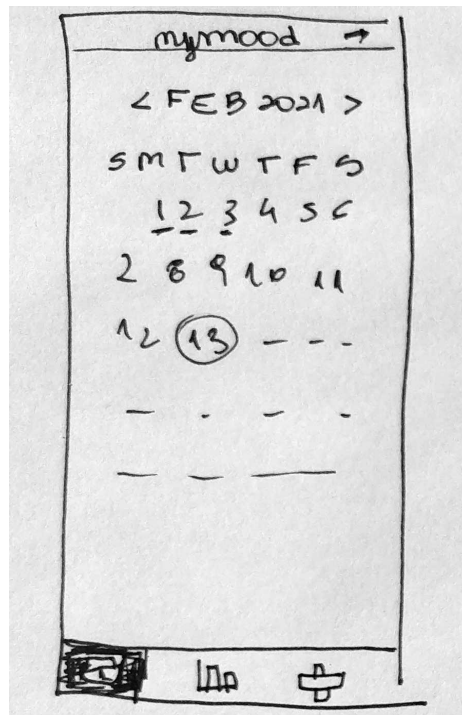 mymood →
< FEB 2021 >
S M T W T F S
1 2 3 4 5 6
2 8 9 10 11
12 13